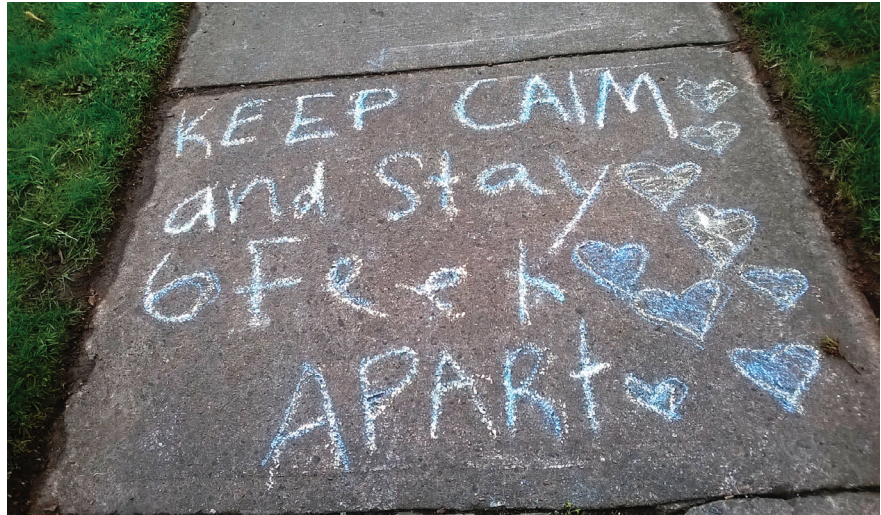 KEEP CAlM
and Stay
6 Feet
APARt